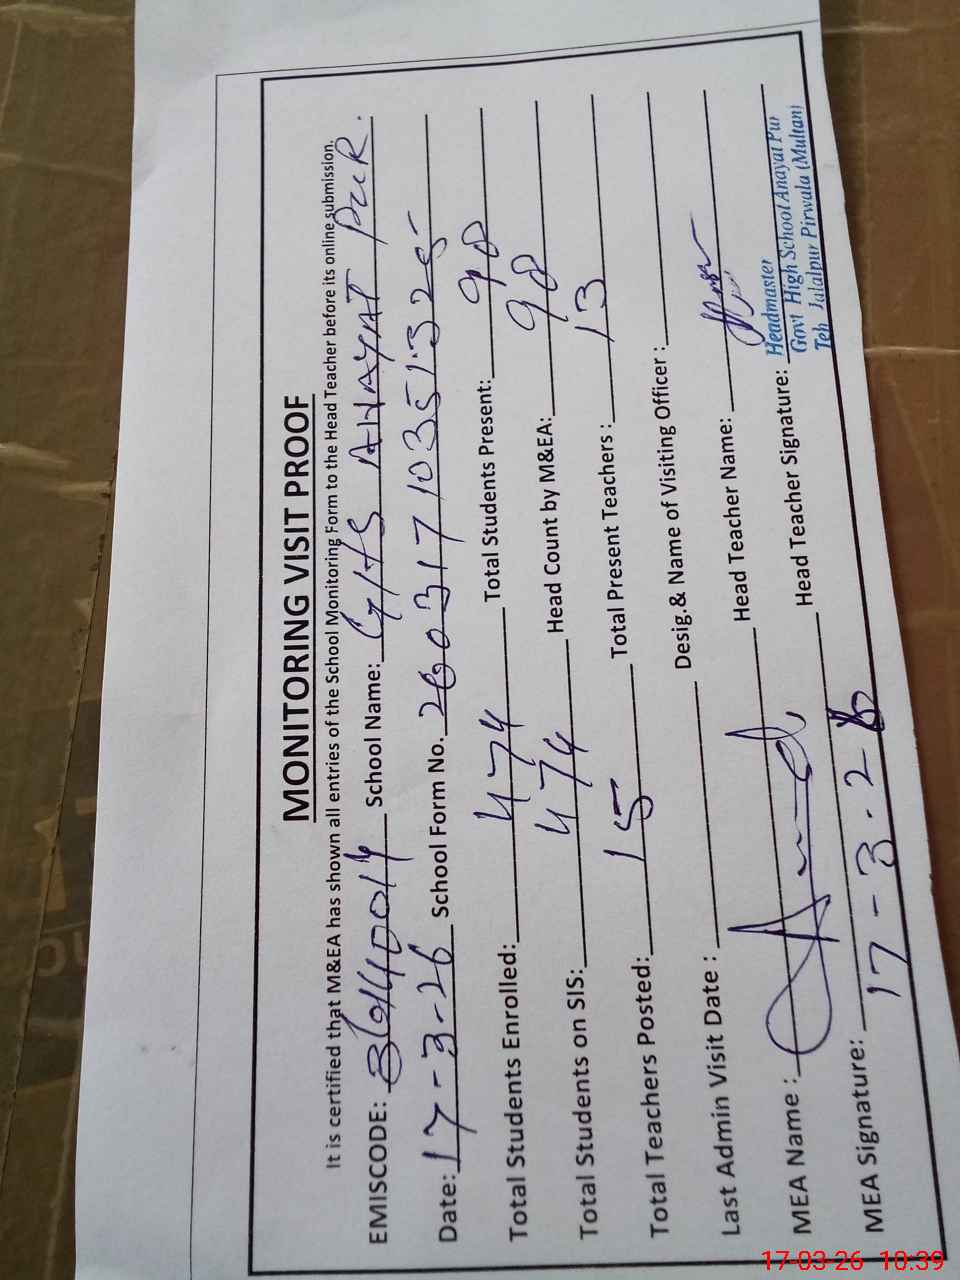 MONITORING VISIT PROOF
It is certified that M&EA has shown all entries of the School Monitoring Form to the Head Teacher before its online submission.
EMISCODE: School Name: GHS ANAYAT PUR.
Date: 17-3-26 School Form No. 260317103513285
Total Students Enrolled: 474 Total Students Present: 98
Total Students on SIS: 474 Head Count by M&EA: 98
Total Teachers Posted: 15 Total Present Teachers : 13
Last Admin Visit Date : Desig.& Name of Visiting Officer :
MEA Name : Head Teacher Name:
MEA Signature: 17-3.26 Head Teacher Signature:
Headmaster
Govt High School Anayat Pur
Teh Jalalpur Pirwala (Multan)
17-03-26 10:39